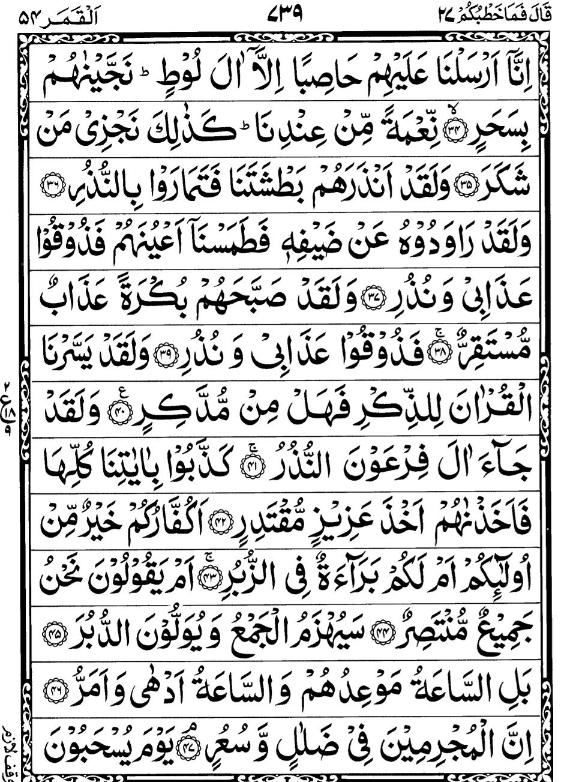 قَالَ فَمَا خَطْبُكُمْ ٢٧ ٧٣٩ اَلْقَمَر ٥٤
اِنَّاۤ اَرْسَلْنَا عَلَيْهِمْ حَاصِبًا اِلَّاۤ اٰلَ لُوْطٍ ؕ نَجَّيْنٰهُمْ
بِسَحَرٍ ﴿۳۴﴾ۙ نِّعْمَةً مِّنْ عِنْدِنَا ؕ كَذٰلِكَ نَجْزِىْ مَنْ
شَكَرَ ﴿۳۵﴾ وَلَقَدْ اَنْذَرَهُمْ بَطْشَتَنَا فَتَمَارَوْا بِالنُّذُرِ ﴿۳۶﴾
وَلَقَدْ رَاوَدُوْهُ عَنْ ضَيْفِهٖ فَطَمَسْنَاۤ اَعْيُنَهُمْ فَذُوْقُوْا
عَذَابِىْ وَنُذُرِ ﴿۳۷﴾ وَلَقَدْ صَبَّحَهُمْ بُكْرَةً عَذَابٌ
مُّسْتَقِرٌّ ﴿۳۸﴾ۚ فَذُوْقُوْا عَذَابِىْ وَنُذُرِ ﴿۳۹﴾ وَلَقَدْ يَسَّرْنَا
الْقُرْاٰنَ لِلذِّكْرِ فَهَلْ مِنْ مُّدَّكِرٍ ﴿۴۰﴾ؑ وَلَقَدْ
جَآءَ اٰلَ فِرْعَوْنَ النُّذُرُ ﴿۴۱﴾ۚ كَذَّبُوْا بِاٰيٰتِنَا كُلِّهَا
فَاَخَذْنٰهُمْ اَخْذَ عَزِيْزٍ مُّقْتَدِرٍ ﴿۴۲﴾ اَكُفَّارُكُمْ خَيْرٌ مِّنْ
اُولٰٓئِكُمْ اَمْ لَكُمْ بَرَآءَةٌ فِى الزُّبُرِ ﴿۴۳﴾ۚ اَمْ يَقُوْلُوْنَ نَحْنُ
جَمِيْعٌ مُّنْتَصِرٌ ﴿۴۴﴾ سَيُهْزَمُ الْجَمْعُ وَيُوَلُّوْنَ الدُّبُرَ ﴿۴۵﴾
بَلِ السَّاعَةُ مَوْعِدُهُمْ وَالسَّاعَةُ اَدْهٰى وَاَمَرُّ ﴿۴۶﴾
اِنَّ الْمُجْرِمِيْنَ فِىْ ضَلٰلٍ وَّسُعُرٍ ﴿۴۷﴾ۘ يَوْمَ يُسْحَبُوْنَ
وقف لازم